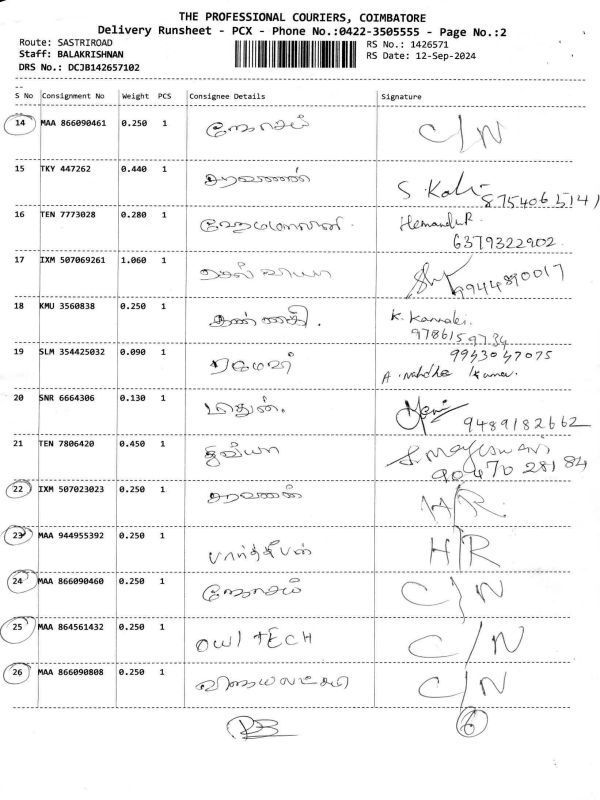 THE PROFESSIONAL COURIERS, COIMBATORE
Delivery Runsheet - PCX - Phone No.:0422-3505555 - Page No.:2
Route: SASTRIROAD RS No.: 1426571
Staff: BALAKRISHNAN RS Date: 12-Sep-2024
DRS No.: DCJB142657102
--
S No Consignment No Weight PCS Consignee Details Signature
--
14 MAA 866090461 0.250 1 C/N
15 TKY 447262 0.440 1 சரவணன் S. Kali 8754065141
16 TEN 7773028 0.280 1 ஹேமமாலினி. 6379322902
17 IXM 507069261 1.060 1 9944890017
18 KMU 3560838 0.250 1 கண்ணகி. K. Kannaki. 9786159734
19 SLM 354425032 0.090 1 9943047075
20 SNR 6664306 0.130 1 மிதுன். 9489182662
21 TEN 7806420 0.450 1 திவ்யா 90470 28184
22 IXM 507023023 0.250 1 சரவணன் H/R
23 MAA 944955392 0.250 1 பார்த்தீபன் H/R
24 MAA 866090460 0.250 1 C/N
25 MAA 864561432 0.250 1 OWI TECH C/N
26 MAA 866090808 0.250 1 விஜயலட்சுமி C/N
6